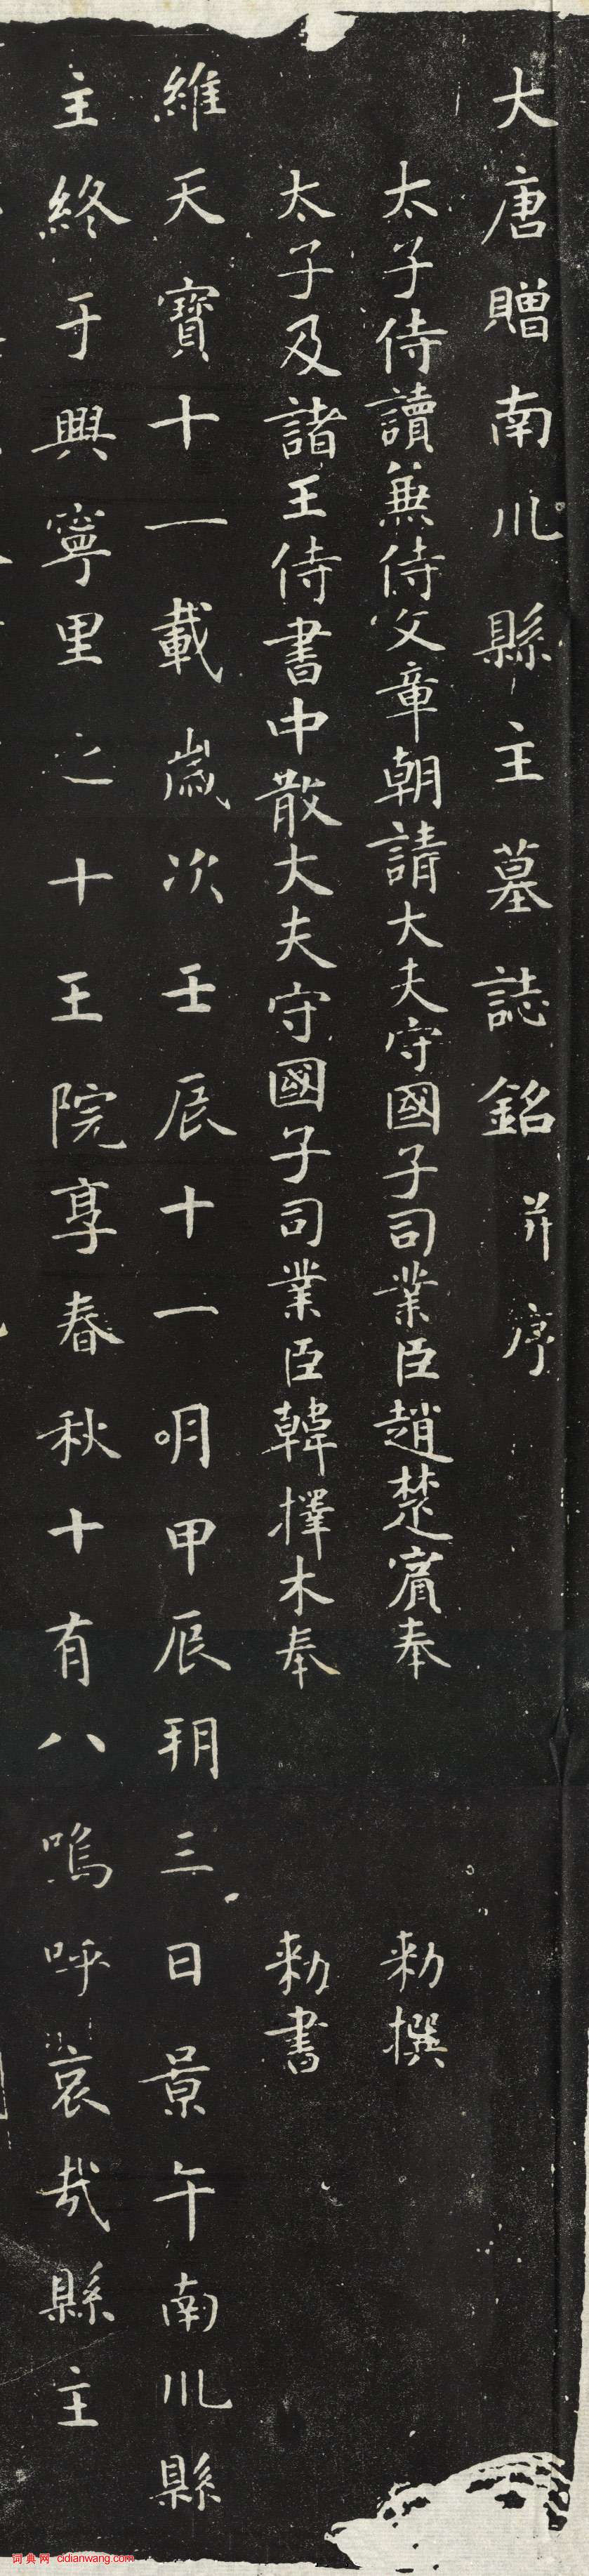 大唐贈南川縣主墓誌銘并序
太子侍讀兼侍文章朝請大夫守國子司業臣趙楚賓奉 勑撰
太子及諸王侍書中散大夫守國子司業臣韓擇木奉 勑書
維天寶十一載歲次壬辰十一明甲辰朔三日景午南川縣
主終于興寧里之十王院享春秋十有八嗚呼哀哉縣主
词典网 cidianwang.com